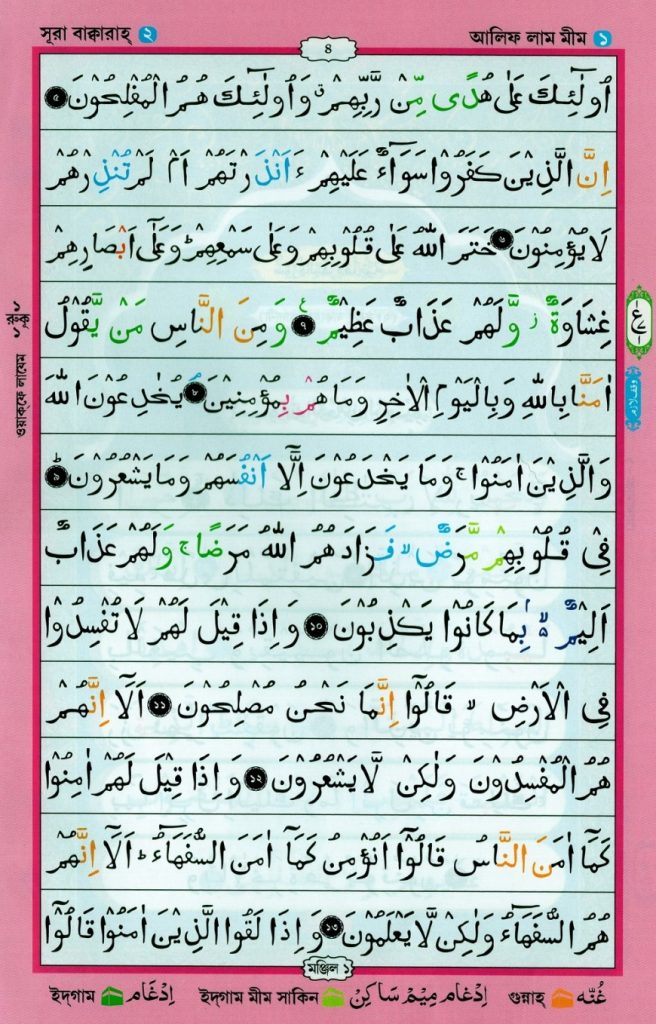 সূরা বাক্বারাহ্ ২
৪
আলিফ লাম মীম ১
اُولٰٓئِكَ عَلٰى هُدًى مِّنْ رَّبِّهِمْ ۙ وَاُولٰٓئِكَ هُمُ الْمُفْلِحُوْنَ ৫
اِنَّ الَّذِيْنَ كَفَرُوْا سَوَآءٌ عَلَيْهِمْ ءَاَنْذَرْتَهُمْ اَمْ لَمْ تُنْذِرْهُمْ
لَا يُؤْمِنُوْنَ ৬ خَتَمَ اللّٰهُ عَلٰى قُلُوْبِهِمْ وَعَلٰى سَمْعِهِمْ ؕ وَعَلٰٓى اَبْصَارِهِمْ
غِشَاوَةٌ ؗ وَّلَهُمْ عَذَابٌ عَظِيْمٌ ৭ وَمِنَ النَّاسِ مَنْ يَّقُوْلُ
اٰمَنَّا بِاللّٰهِ وَبِالْيَوْمِ الْاٰخِرِ وَمَا هُمْ بِمُؤْمِنِيْنَ ৮ يُخٰدِعُوْنَ اللّٰهَ
وَالَّذِيْنَ اٰمَنُوْا ۚ وَمَا يَخْدَعُوْنَ اِلَّآ اَنْفُسَهُمْ وَمَا يَشْعُرُوْنَ ৯
فِيْ قُلُوْبِهِمْ مَّرَضٌ ۙ فَزَادَهُمُ اللّٰهُ مَرَضًا ۚ وَلَهُمْ عَذَابٌ
اَلِيْمٌ ۢۙ بِمَا كَانُوْا يَكْذِبُوْنَ ১০ وَاِذَا قِيْلَ لَهُمْ لَا تُفْسِدُوْا
فِى الْاَرْضِ ۙ قَالُوْٓا اِنَّمَا نَحْنُ مُصْلِحُوْنَ ১১ اَلَآ اِنَّهُمْ
هُمُ الْمُفْسِدُوْنَ وَلٰكِنْ لَّا يَشْعُرُوْنَ ১২ وَاِذَا قِيْلَ لَهُمْ اٰمِنُوْا
كَمَآ اٰمَنَ النَّاسُ قَالُوْٓا اَنُؤْمِنُ كَمَآ اٰمَنَ السُّفَهَآءُ ؕ اَلَآ اِنَّهُمْ
هُمُ السُّفَهَآءُ وَلٰكِنْ لَّا يَعْلَمُوْنَ ১৩ وَاِذَا لَقُوا الَّذِيْنَ اٰمَنُوْا قَالُوْٓا
মঞ্জিল ১
ওয়াক্‌ফে লাযেম
وقف لازم
গুন্নাহ্ غُنّه
ইদ্‌গাম মীম সাকিন اِدْغَام مِيْمْ سَاكِنْ
ইদ্‌গাম اِدْغَام